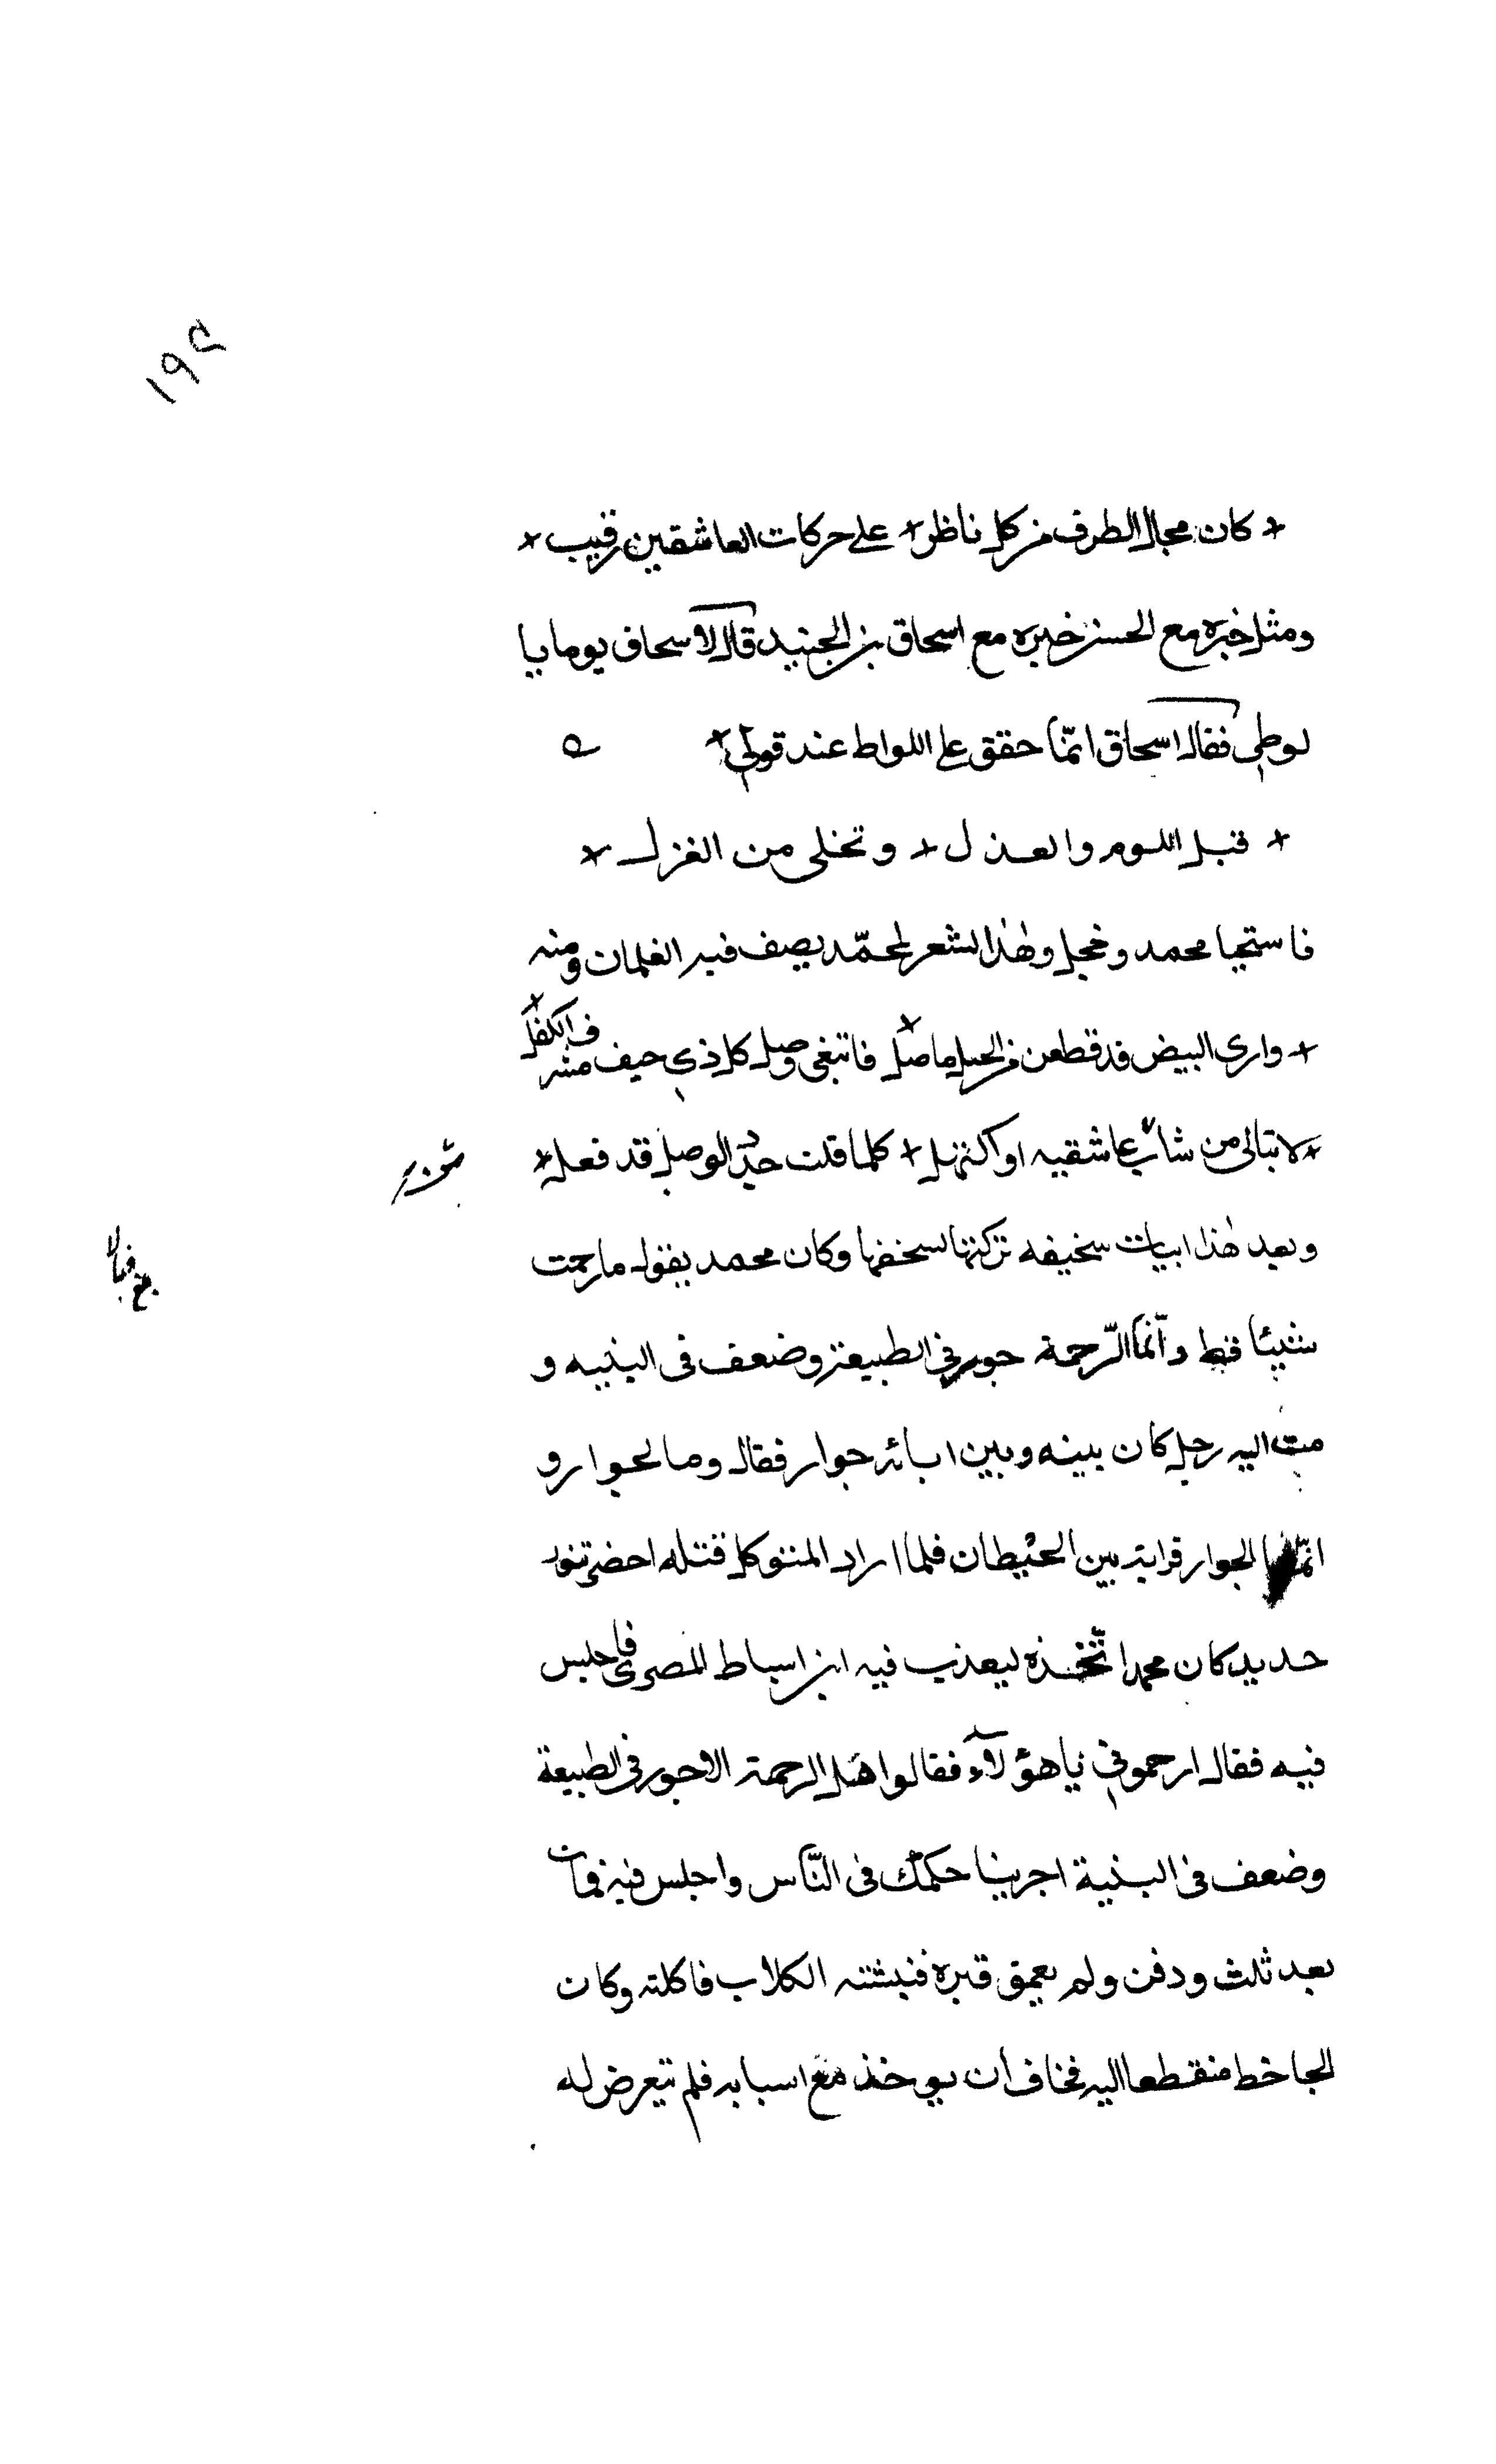 ١٩٢
كان مجال الطرف من كل ناظر * على حركات العاشقين رقيب *
ومثل خبره مع الحسن خبره مع اسحاق بن الجنيد قال لاسحاق يوما يا
لوطى فقال اسحاق انمّا حقق على اللواط عند قولى *
* قبل اللوم والعذل * وتخلى من الغزل *
فاستحيا محمد وخجل وهذا الشعر لمحمّد يصف فيه الغلمان ومنه
* وارى البيض قد قطعن من الحبل ما وصل * فاتبغى وصل كل ذى حيف مشرف الكفل *
* لا تبالى من شاب عاشقيه او اكتهل * كلما قلت جد الوصل قد فعل *
وبعد هذا ابيات سخيفه تركتها لسخفها وكان محمد يقول ما رحمت
شيئا قط وانّما الرّحمة خور فى الطبيعة وضعف فى البنيه و
مت اليه رجل كان بينه وبين ابائه جوار فقال وما لجوار و
انمّا الجوار قرابة بين الحيطان فلما اراد المتوكل قتله احضر تنور
حديد كان محمد اتّخذه ليعذب فيه ابن اسباط المصرى فاجلس
فيه فقال ارحمونى ياهؤلآء فقالوا هل الرحمة الا خور فى الطبيعة
وضعف فى البنية اجرينا حكمك فى النّاس واجلس فيه فمات
بعد ثلث ودفن ولم يعمق قبره فنبشته الكلاب فاكلته وكان
الجاحظ منقطعا اليه فخاف أن يوخذ مع اسبابه فلم تتعرض له